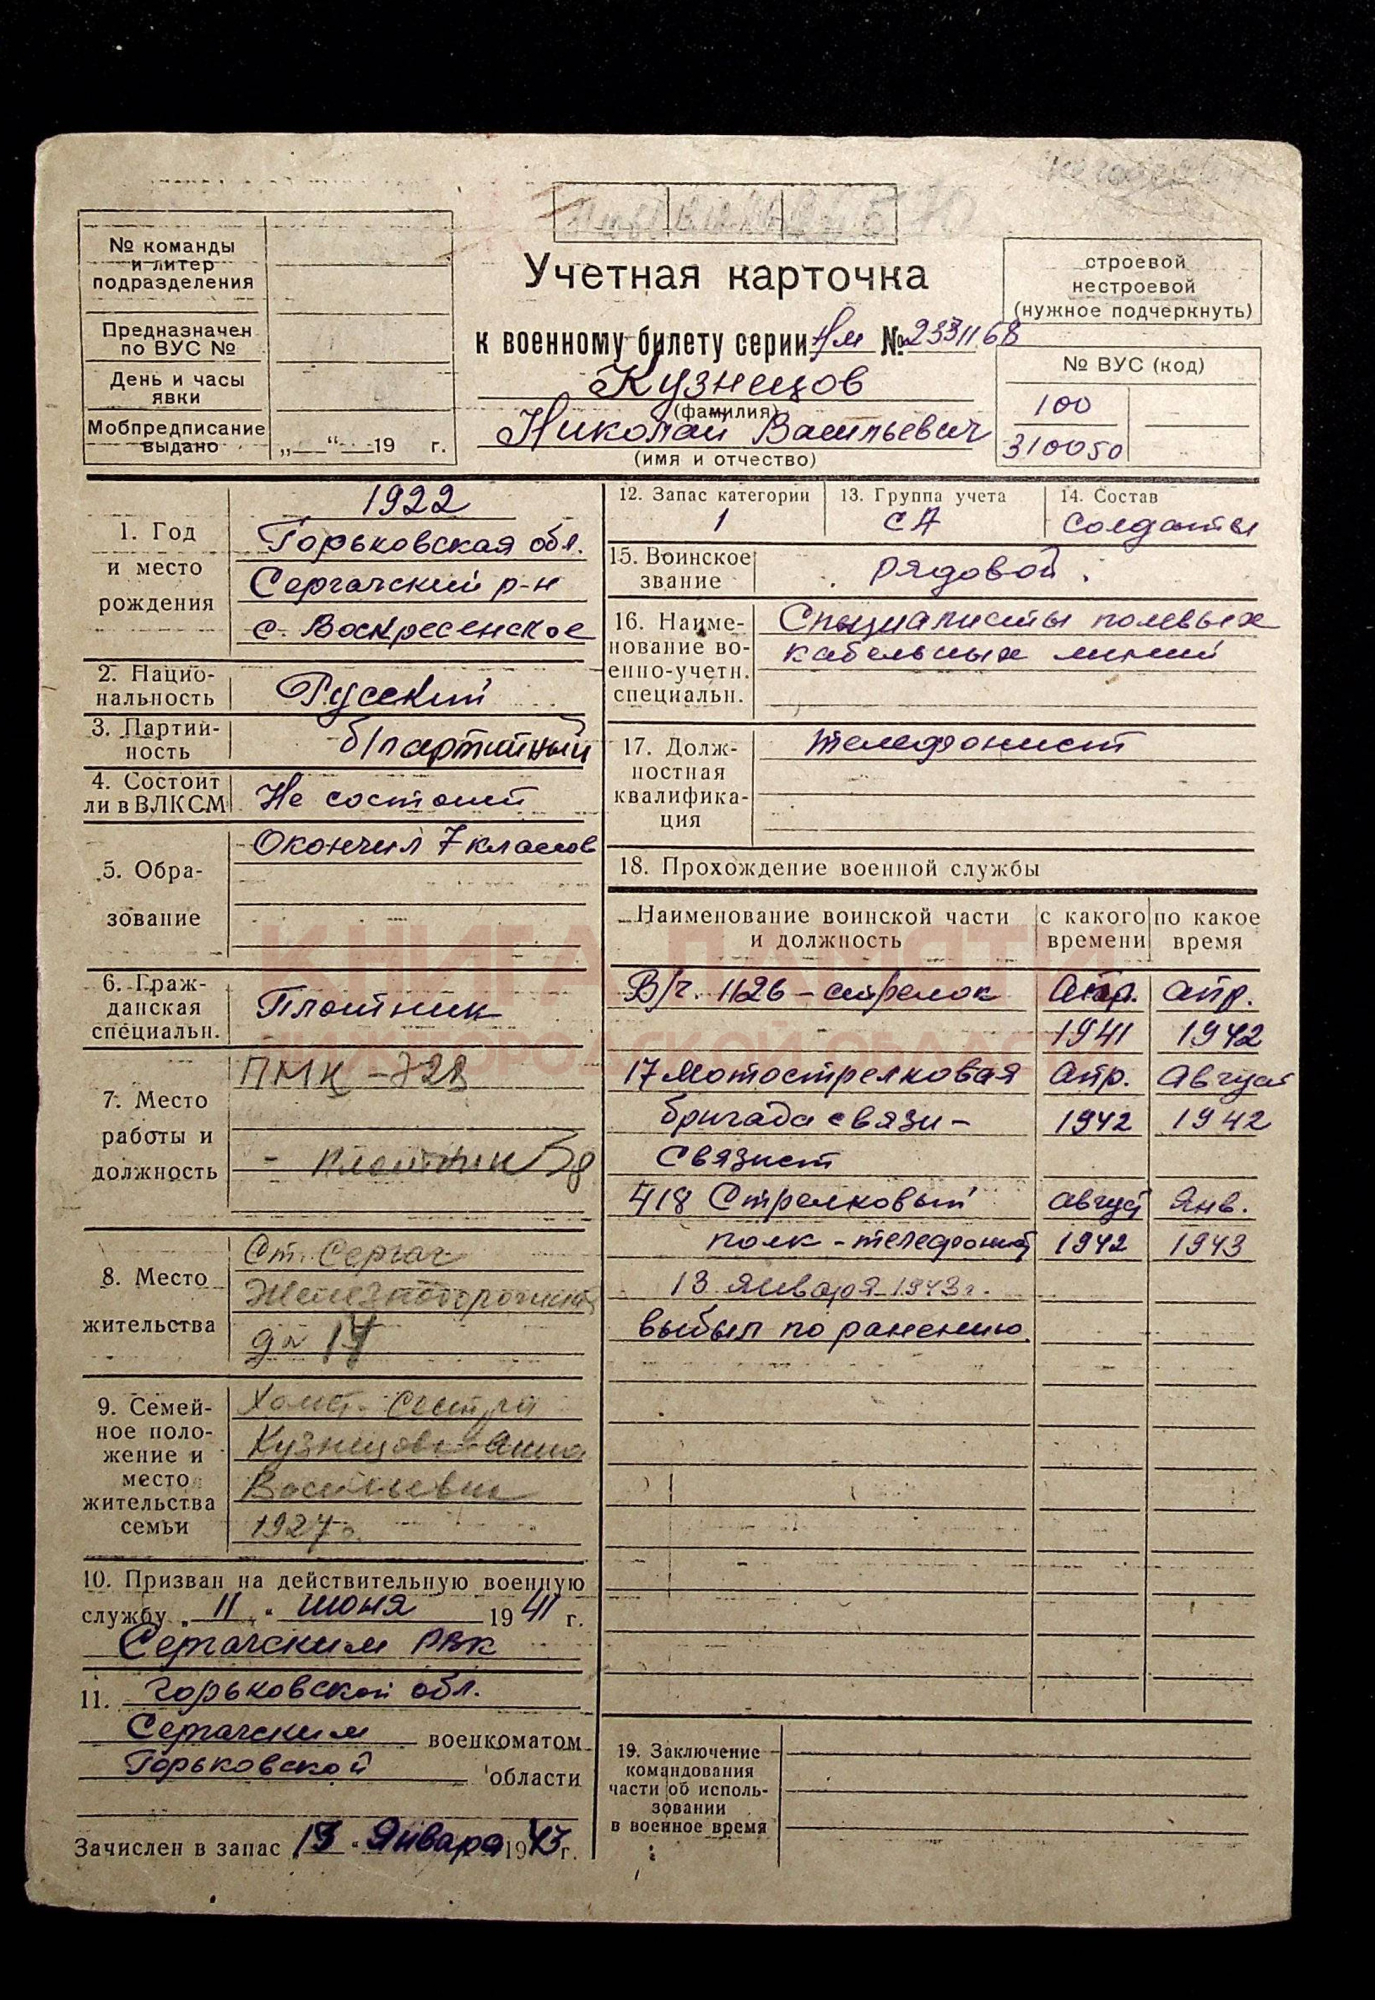 № команды
и литер
подразделения
Предназначен
по ВУС №
День и часы
явки
Мобпредписание
выдано „ “ 19 г.
Учетная карточка
к военному билету серии Нм № 2331168
Кузнецов
(фамилия)
Николай Васильевич
(имя и отчество)
строевой
нестроевой
(нужное подчеркнуть)
№ ВУС (код)
100
310050
1. Год
и место
рождения
1922
Горьковская обл.
Сергачский р-н
с. Воскресенское
2. Нацио-
нальность
Русский
3. Партий-
ность
б/партийный
4. Состоит
ли в ВЛКСМ
Не состоит
5. Обра-
зование
Окончил 7 классов
6. Граж-
данская
специальн.
Плотник
7. Место
работы и
должность
ПМК-728
- плотник
8. Место
жительства
Ст. Сергач
дм 14
9. Семей-
ное поло-
жение и
место
жительства
семьи
Холост. Сестра
Кузнецова Анна
Васильевна
1927г.
10. Призван на действительную военную
службу „ 11 “ июня 1941 г.
Сергачским РВК
11. Горьковской обл.
Сергачским военкоматом
Горьковской области
Зачислен в запас 13 “ Января 1943 г.
12. Запас категории
1
13. Группа учета
СА
14. Состав
солдаты
15. Воинское
звание
рядовой.
16. Наиме-
нование во-
енно-учетн.
специальн.
Специалисты полевых
кабельных линий
17. Долж-
ностная
квалифика-
ция
телефонист
18. Прохождение военной службы
Наименование воинской части
и должность
с какого
времени
по какое
время
В/ч. 1126 - стрелок апр. апр.
1941 1942
17 мотострелковая апр. август
бригада связи - 1942 1942
связист
418 Стрелковый август Янв.
полк - телефонист 1942 1943
13 января 1943 г.
выбыл по ранению.
19. Заключение
командования
части об исполь-
зовании
в военное время
КНИГА ПАМЯТИ
НИЖГОРОДСКОЙ ОБЛАСТИ